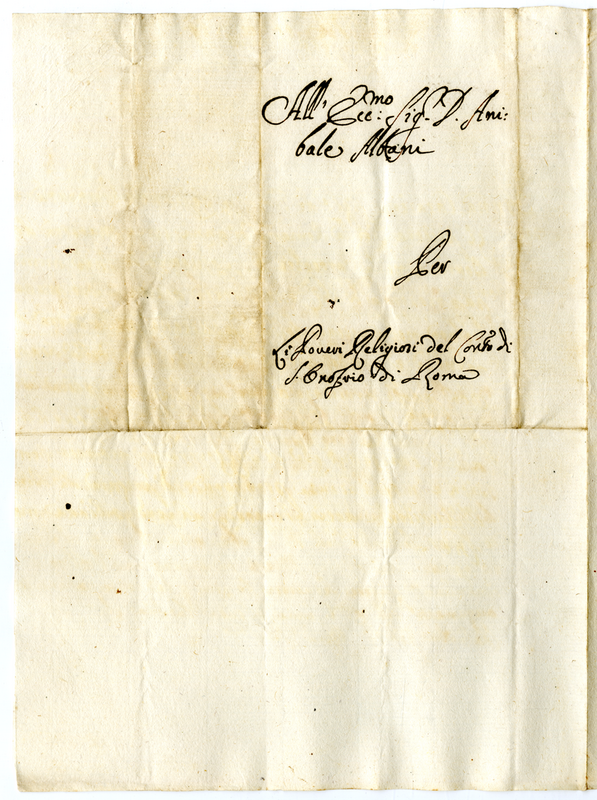 All' Ecc:mo Sig.r D. Ani:
bale Albani
Per
Li Poveri Religiosi del Conto di
S. Onofrio di Roma